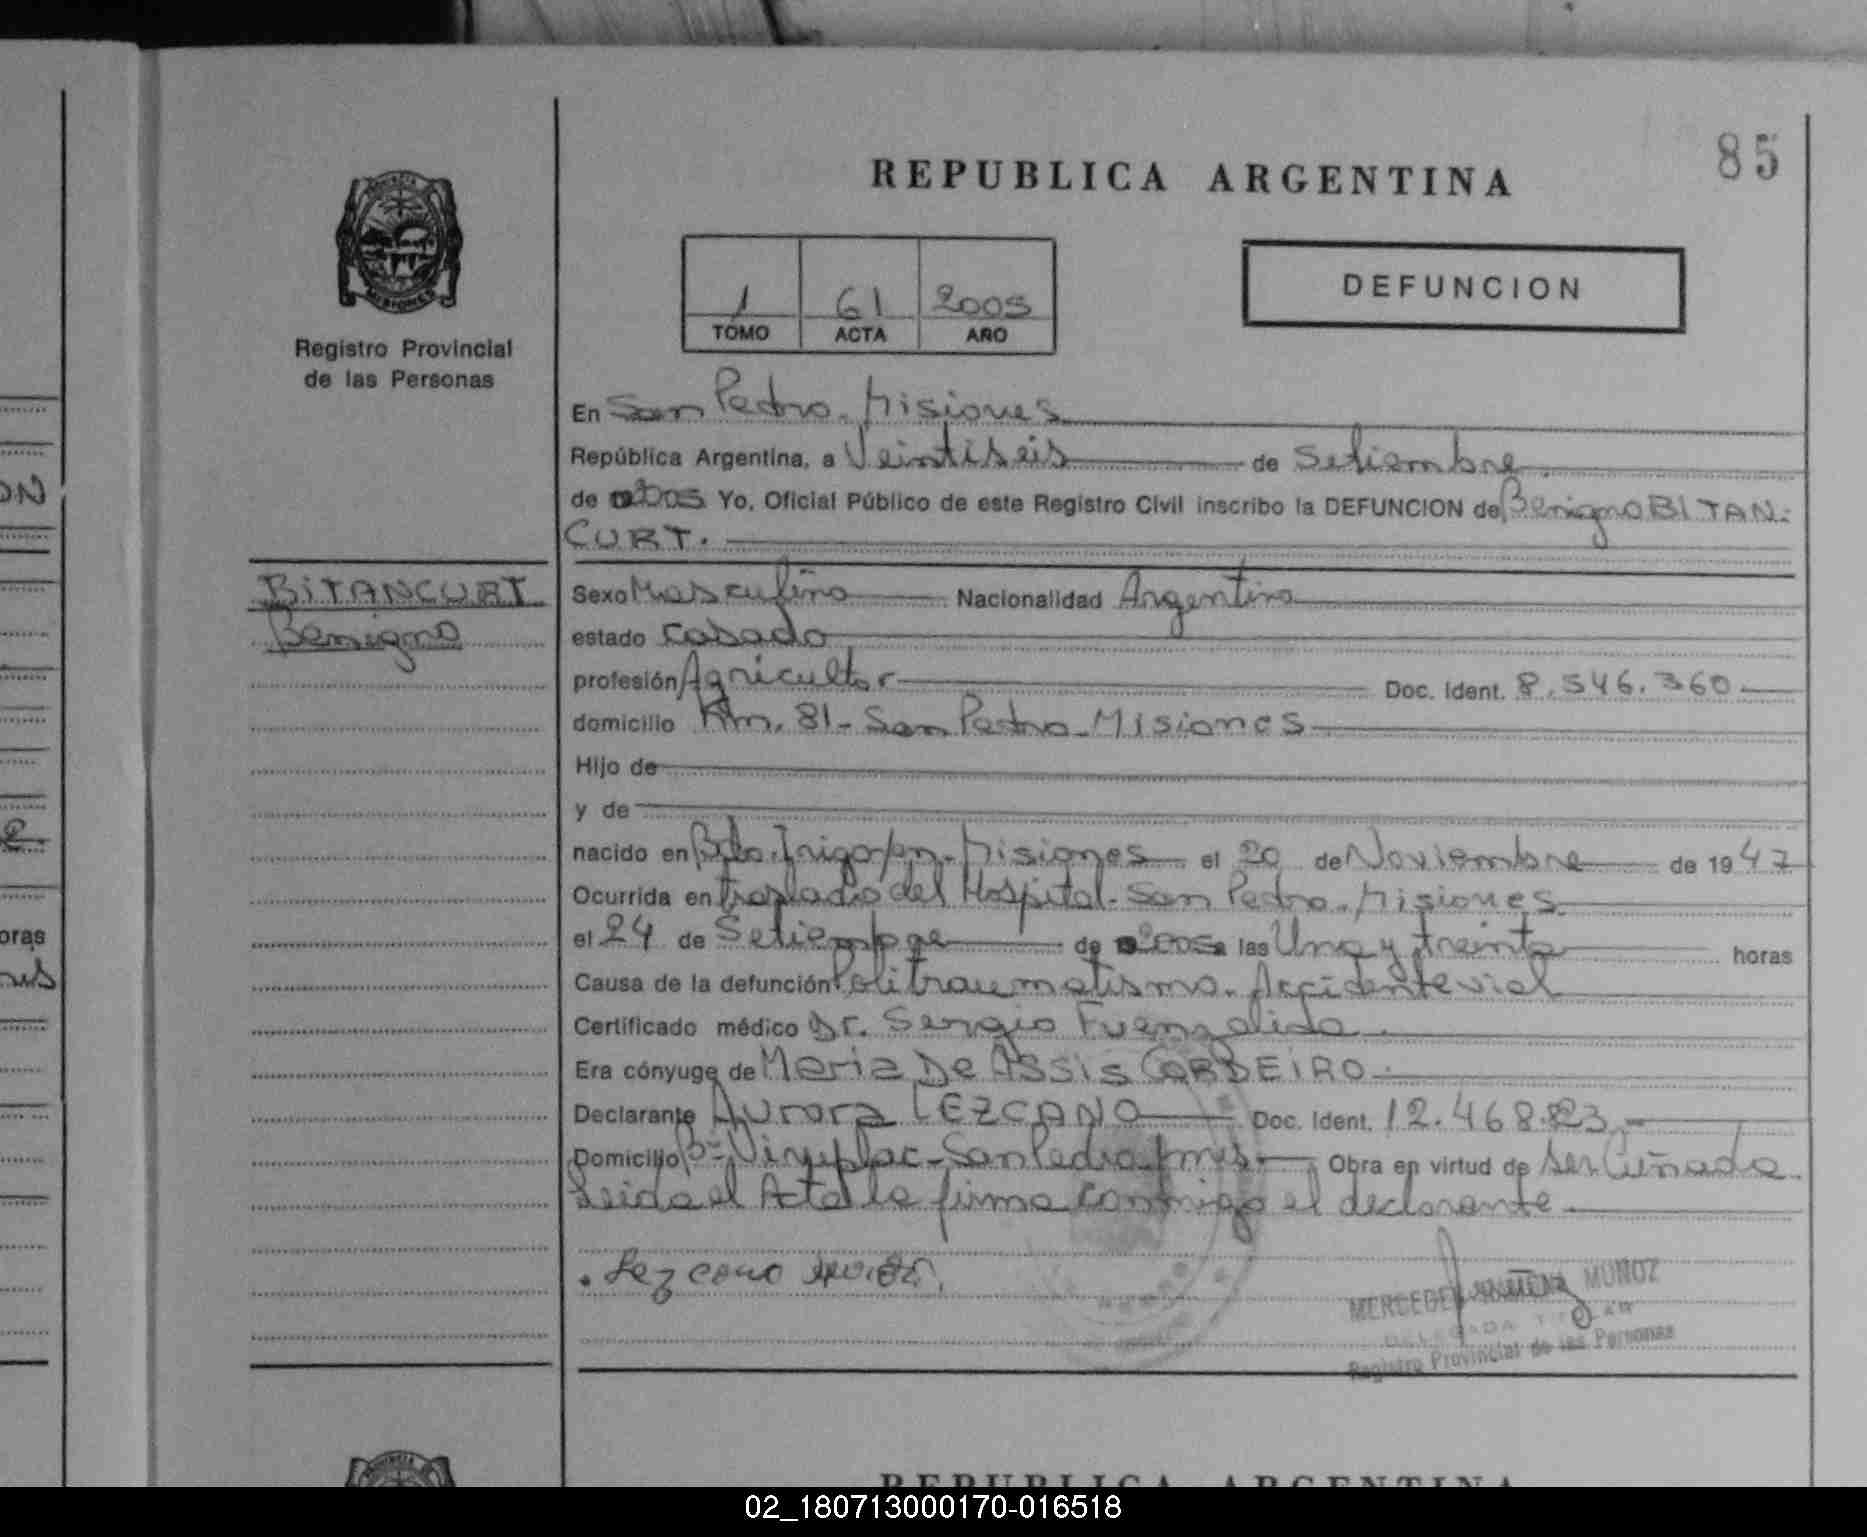 85
REPUBLICA ARGENTINA
1 61 2005
TOMO ACTA AÑO
DEFUNCION
Registro Provincial
de las Personas
En San Pedro. Misiones
República Argentina, a Veintiseis de Setiembre
de 2005 Yo, Oficial Público de este Registro Civil inscribo la DEFUNCION de Benigno BITAN-
CURT.
BITANCURT
Benigno
Sexo Masculino Nacionalidad Argentina
estado casado
profesión Agricultor Doc. Ident. 8.546.360
domicilio Km. 81 - San Pedro - Misiones
Hijo de
y de
nacido en Bdo. Irigoyen - Misiones el 20 de Noviembre de 1947
Ocurrida en traslado del Hospital - San Pedro. Misiones
el 24 de Setiembre de 2005 a las Una y treinta horas
Causa de la defunción Politraumatismo. Accidente vial
Certificado médico Dr. Sergio Fuenzalida.
Era cónyuge de Maria De Assis CORDEIRO.
Declarante Aurora LEZCANO Doc. Ident. 12.468.823
Domicilio San Pedro Mnes. Obra en virtud de ser Cuñada.
Leida el Acta la firma conmigo el declarante
Lezcano
MERCEDES MUÑOZ
DELEGADA TITULAR
Registro Provincial de las Personas
REPUBLICA ARGENTINA
ON
oras
02_180713000170-016518